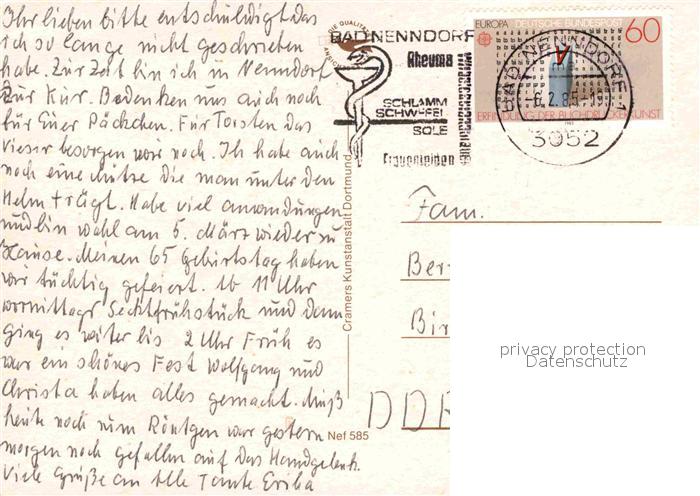 Ihr lieben bitte entschuldigt das
ich so lange nicht geschrieben
habe. Zur Zeit bin ich in Nenndorf
zur Kur. Bedanken uns auch noch
für Euer Päckchen. Für Torsten das
besorgen wir noch. Ich habe auch
noch eine Mütze die man unter den
Helm trägt. Habe viel anwendungen
und bin wohl am 5. März wieder zu
Hause. Meinen 65 Geburtstag haben
wir tüchtig gefeiert. 11 Uhr
vormittags Sektfrühstück und dann
ging es weiter bis 2 Uhr Früh es
war ein schönes Fest Wolfgang und
Christa haben alles gemacht. Muß
heute noch zum Röntgen war gestern
morgen noch gefallen auf das Handgelenk.
Viele Grüße an Alle Tante Erika
Cramers Kunstanstalt Dortmund
Nef 585
BAD NENNDORF
Rheuma
SCHLAMM
SCHWEFEL
SOLE
Frauenleiden
EUROPA DEUTSCHE BUNDESPOST
60
ERFINDUNG DER BUCHDRUCKERKUNST
BAD NENNDORF 1
3052
Fam.
Ber
Bir
DDR
privacy protection
Datenschutz